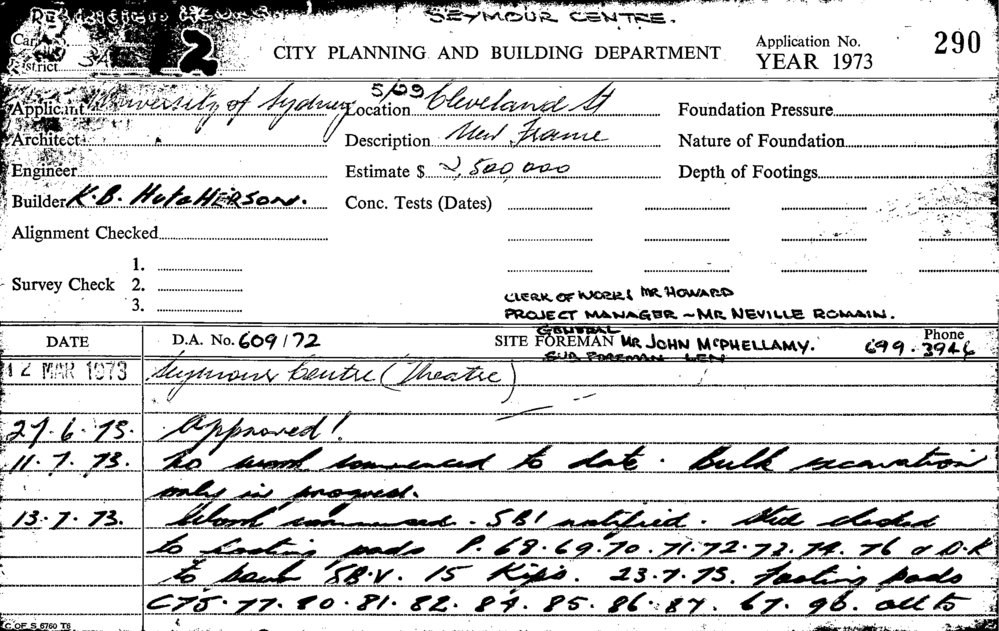 SEYMOUR CENTRE.
2
CITY PLANNING AND BUILDING DEPARTMENT
Application No. 290
YEAR 1973
Applicant University of Sydney
Location 5/09 Cleveland St
Foundation Pressure
Architect
Description New Frame
Nature of Foundation
Engineer
Estimate $ 2,500,000
Depth of Footings
Builder K.B. HutcHERSON.
Conc. Tests (Dates)
Alignment Checked
Survey Check 1.
2.
3.
CLERK OF WORKS MR HOWARD
PROJECT MANAGER ~ MR NEVILLE ROMAIN.
DATE
D.A. No. 609/72
GENERAL
SITE FOREMAN MR JOHN McPHELLAMY.
Phone
699.3946
SUB FOREMAN LEN
12 MAR 1973 Seymour Centre (Theatre)
27.6.73. Approved!
11.7.73. No work commenced to date. Bulk excavation
only in progress.
13.7.73. Work commenced. SBI notified. Steel checked
to footing pads P. 68.69.70.71.72.73.74.76 & O.K
to pour SB.V. 15 Kips. 23.7.73. Footing Pads
C75.77.80.81.82.84.85.86.87. 67.96. all to
C OF S 6760 T6